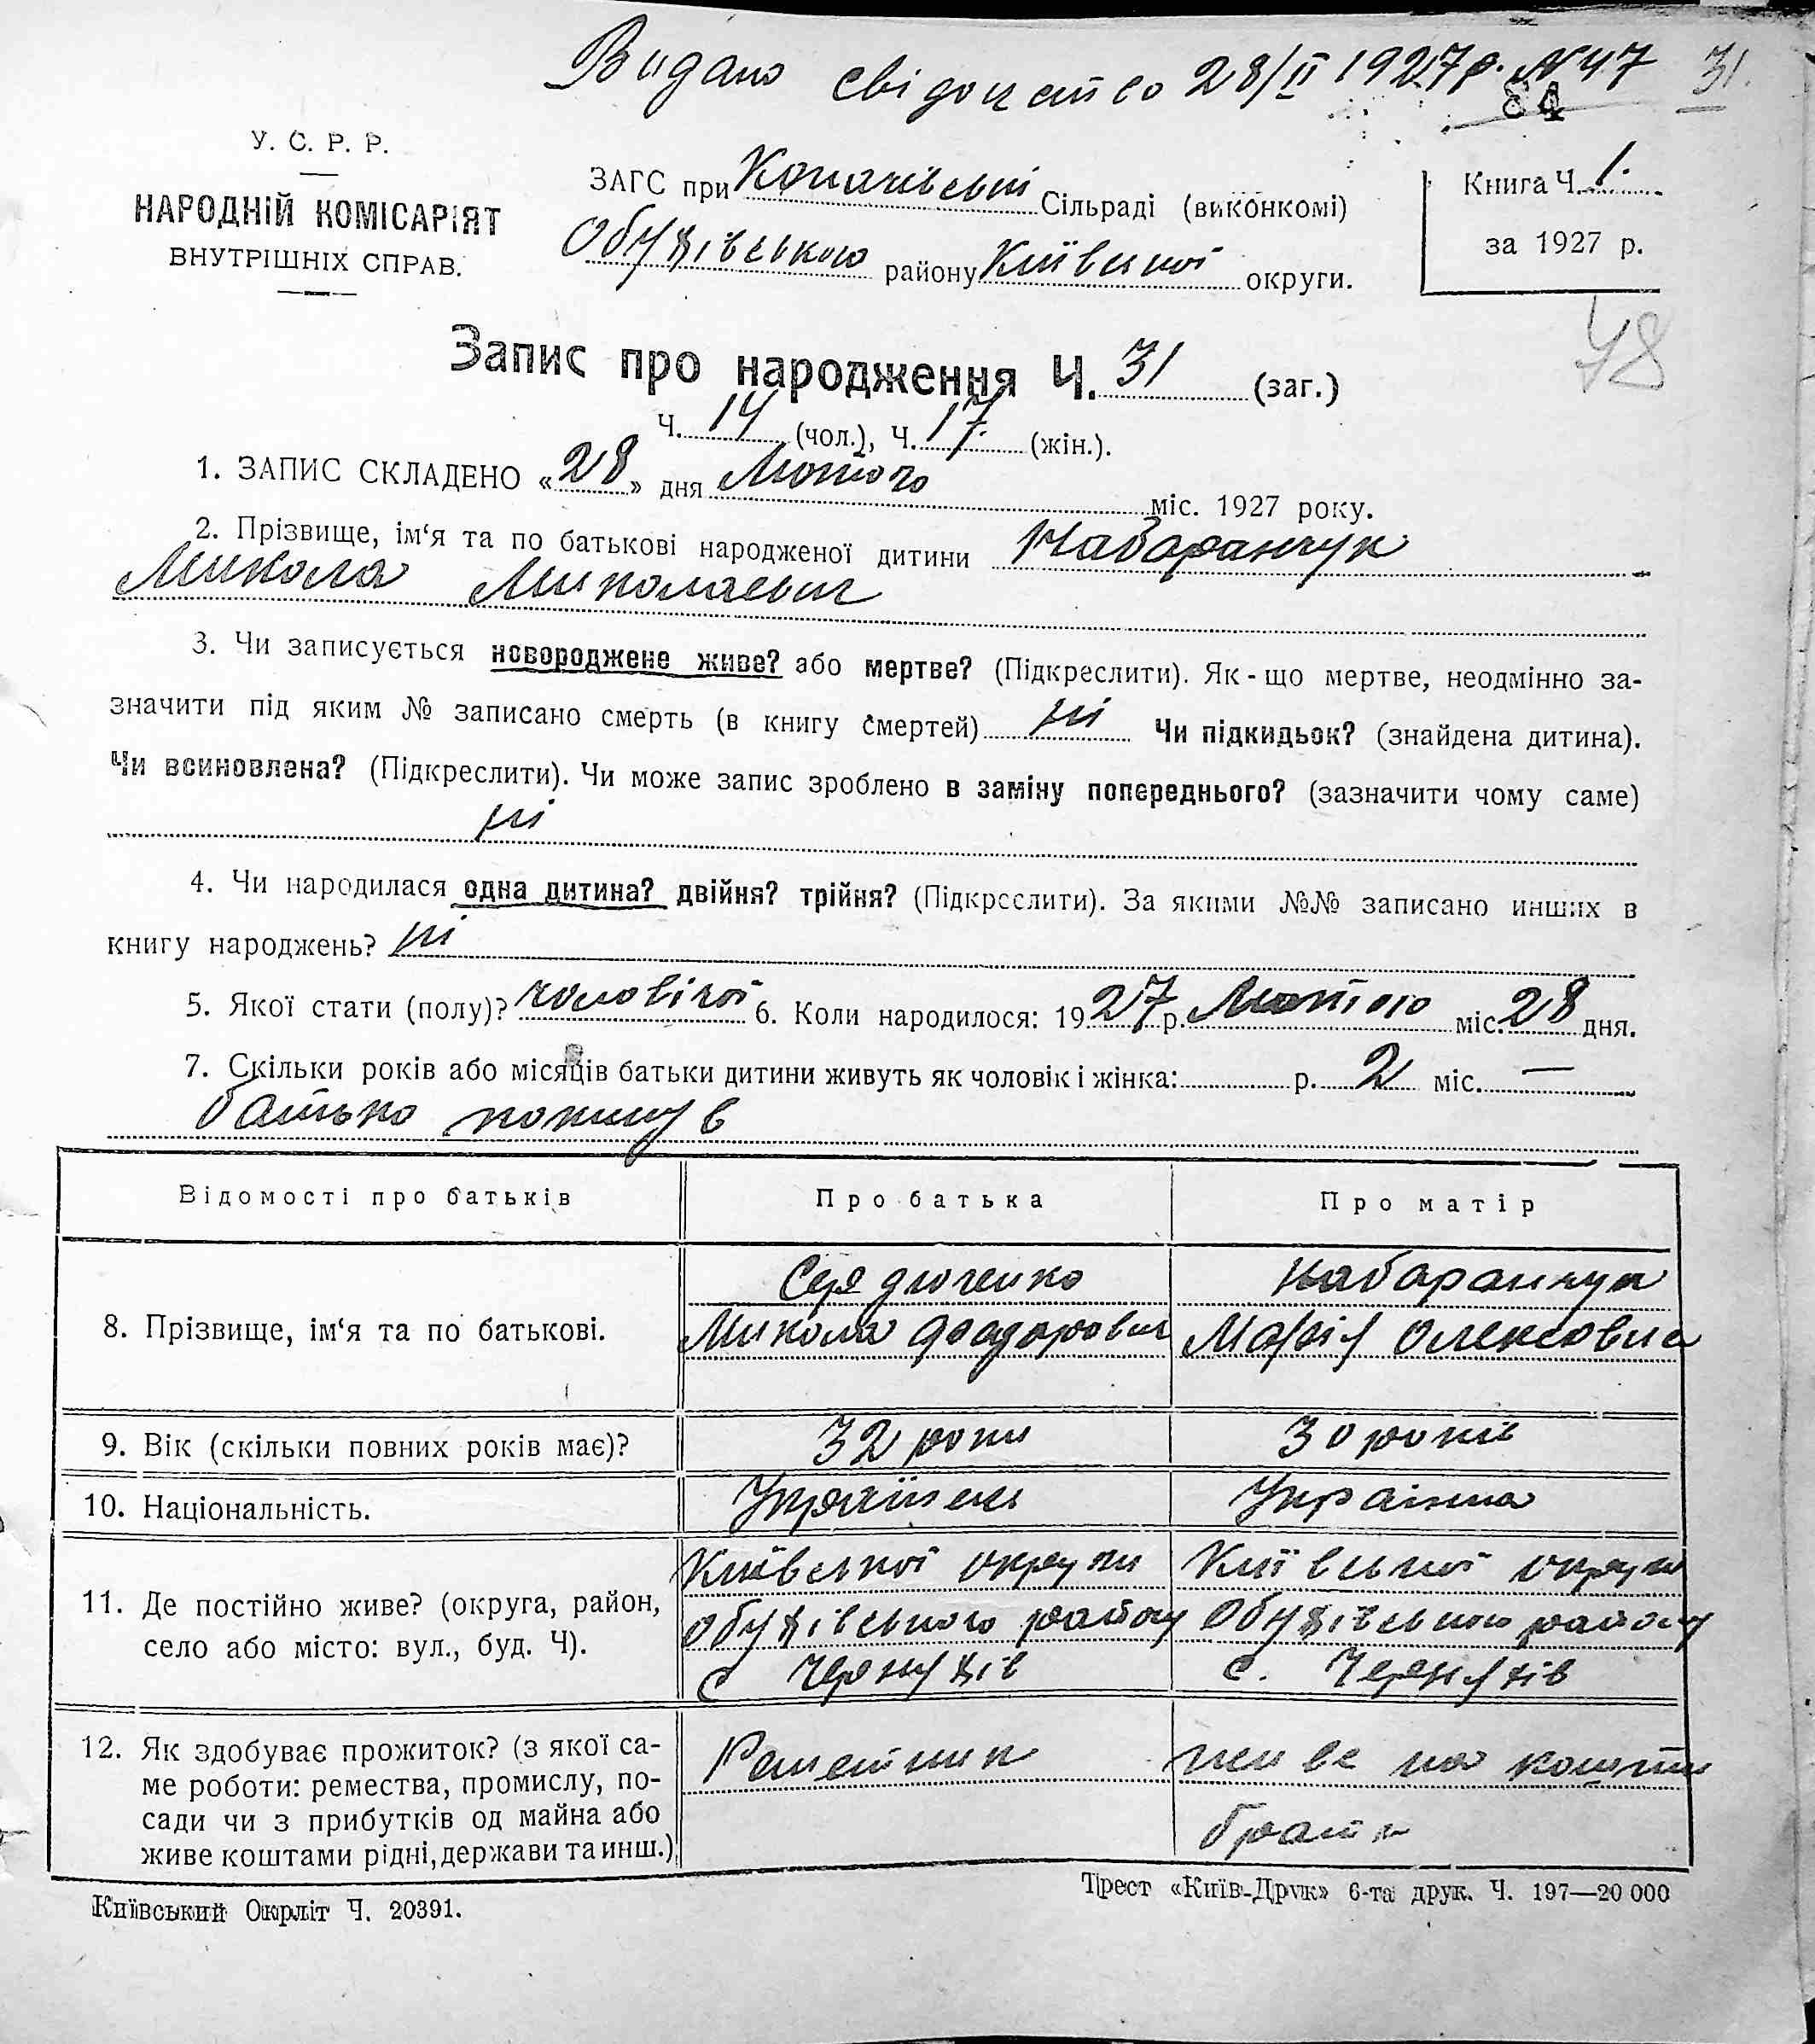 Видано свідоцтво 28/II 1927р. N47 31.
84
У. С. Р. Р.
НАРОДНІЙ КОМІСАРІЯТ
ВНУТРІШНІХ СПРАВ.
ЗАГС при Копачівській Сільраді (виконкомі)
Обухівського району Київської округи.
Книга Ч. 1.
за 1927 р.
48
Запис про народження Ч. 31 (заг.)
Ч. 14 (чол.), Ч. 17. (жін.).
1. ЗАПИС СКЛАДЕНО « 28 » дня Лютого міс. 1927 року.
2. Прізвище, ім‘я та по батькові народженої дитини Кабаранчук
Микола Миколаевич
3. Чи записується новороджене живе? або мертве? (Підкреслити). Як-що мертве, неодмінно за-
значити під яким № записано смерть (в книгу смертей) ні Чи підкидьок? (знайдена дитина).
Чи всиновлена? (Підкреслити). Чи може запис зроблено в заміну попереднього? (зазначити чому саме)
ні
4. Чи народилася одна дитина? двійня? трійня? (Підкреслити). За якими №№ записано инших в
книгу народжень? ні
5. Якої стати (полу)? чоловічої 6. Коли народилося: 1927 р. Лютого міс. 28 дня.
7. Скільки років або місяців батьки дитини живуть як чоловік і жінка: р. 2 міс. —
батько покинув
Відомості про батьків Про батька Про матір
8. Прізвище, ім‘я та по батькові.
Середюченко
Микола Феодорович
Кабаранчук
Марія Олексовна
9. Вік (скільки повних років має)? 32 роки 30 років
10. Національність. Українец Українка
11. Де постійно живе? (округа, район,
село або місто: вул., буд. Ч).
Київської округи
Обухівського району
с
Київської округи
Обухівського району
с.
12. Як здобуває прожиток? (з якої са-
ме роботи: ремества, промислу, по-
сади чи з прибутків од майна або
живе коштами рідні, держави та инш.)
живе на кошти
брата
Київський Окрліт Ч. 20391.
Трест «Київ-Друк» 6-та друк. Ч. 197—20 000